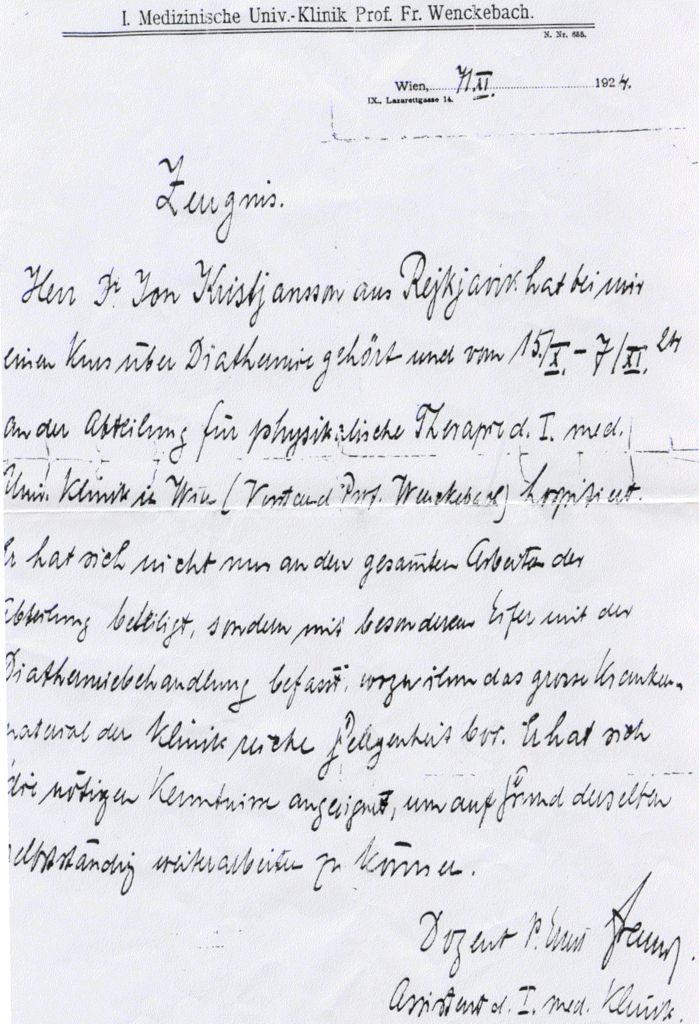 I. Medizinische Univ.-Klinik Prof. Fr. Wenckebach.
N. Nr. 685.
Wien, 7/XI. 1924.
IX., Lazarettgasse 14.
Zeugnis.
Herr Dr Jon Kristjansson aus Rejkjavik hat bei mir
einen Kurs über Diathermie gehört und vom 15/X. - 7/XI. 24
an der Abteilung für physikalische Therapie d. I. med.
Univ. Klinik in Wien (Vorstand Prof. Wenckebach) hospitiert.
Er hat sich nicht nur an den gesamten Arbeiten der
Abteilung beteiligt, sondern mit besonderem Eifer mit der
Diathermiebehandlung befasst, wozu ihm das grosse Kranken-
material der Klinik reiche Gelegenheit bot. Er hat sich
die nötigen Kenntnisse angeeignet, um auf Grund derselben
selbstständig weiterarbeiten zu können.
Dozent
Assistent d. I. med. Klinik.